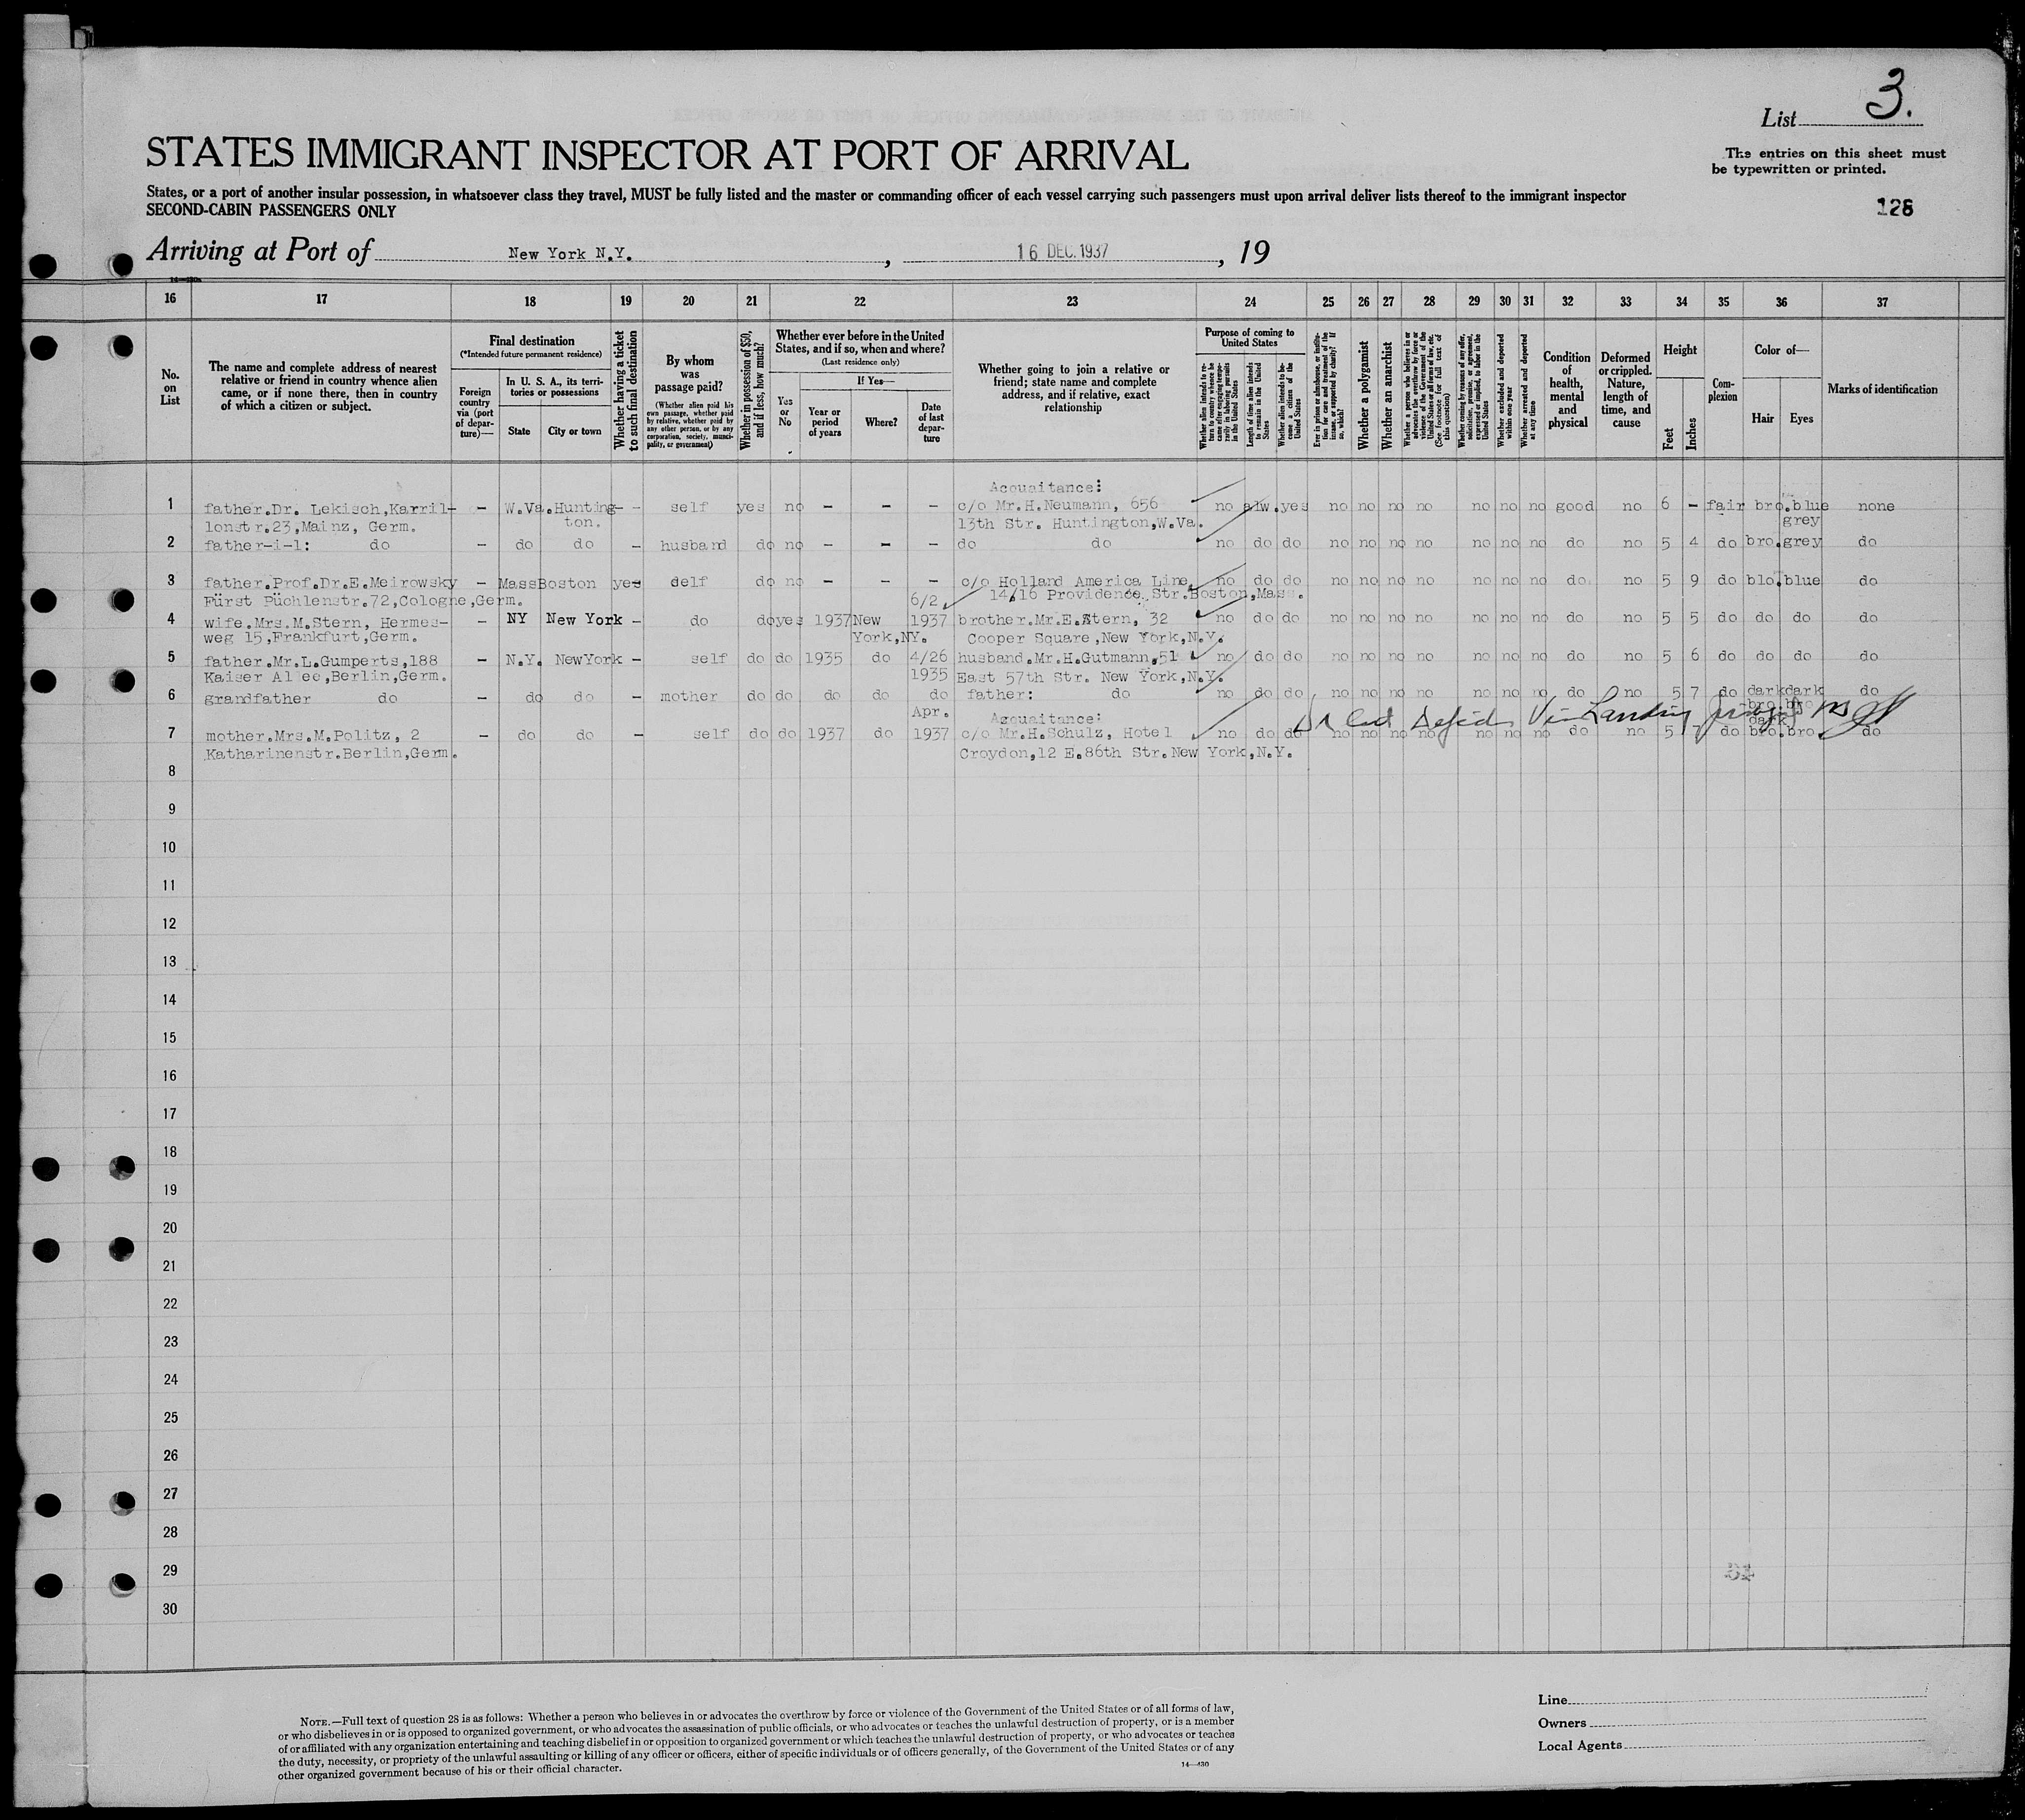 List 3.
The entries on this sheet must
be typewritten or printed.
STATES IMMIGRANT INSPECTOR AT PORT OF ARRIVAL
States, or a port of another insular possession, in whatsoever class they travel, MUST be fully listed and the master or commanding officer of each vessel carrying such passengers must upon arrival deliver lists thereof to the immigrant inspector
SECOND-CABIN PASSENGERS ONLY
128
Arriving at Port of New York N.Y. , 16 DEC. 1937 , 19
16 17 18 19 20 21 22 23 24 25 26 27 28 29 30 31 32 33 34 35 36 37
No. on List
The name and complete address of nearest
relative or friend in country whence alien
came, or if none there, then in country
of which a citizen or subject.
Final destination
(*Intended future permanent residence)
Foreign country via (port of departure)—
In U. S. A., its territories or possessions
State
City or town
Whether having a ticket to such final destination
By whom was passage paid?
(Whether alien paid his own passage, whether paid by relative, whether paid by any other person, or by any corporation, society, municipality, or government)
Whether in possession of $50, and if less, how much?
Whether ever before in the United States, and if so, when and where?
(Last residence only)
Yes or No
If Yes—
Year or period of years
Where?
Date of last departure
Whether going to join a relative or
friend; state name and complete
address, and if relative, exact
relationship
Purpose of coming to United States
Whether alien intends to return to country whence he came after engaging temporarily in laboring pursuits in the United States
Length of time alien intends to remain in the United States
Whether alien intends to become a citizen of the United States
Ever in prison or almshouse, or institution for care and treatment of the insane, or supported by charity? If so, which?
Whether a polygamist
Whether an anarchist
Whether a person who believes in or advocates the overthrow by force or violence of the Government of the United States or all forms of law, etc. (See footnote for full text of this question)
Whether coming by reason of any offer, solicitation, promise, or agreement, expressed or implied, to labor in the United States
Whether excluded and deported within one year
Whether arrested and deported at any time
Condition of health, mental and physical
Deformed or crippled. Nature, length of time, and cause
Height
Feet
Inches
Complexion
Color of—
Hair
Eyes
Marks of identification
Acquaitance:
1 father.Dr. Lekisch,Karril- – W.Va.Hunting- – self yes no – – – c/o Mr.H.Neumann, 656 no alw. yes no no no no no no no good no 6 – fair bro.blue none
lonstr.23,Mainz, Germ. ton. 13th Str. Huntington,W.Va. grey
2 father-i-l: do – do do – husband do no – – – do do no do do no no no no no no no do no 5 4 do bro.grey do
3 father.Prof.Dr.E.Meirowsky – Mass Boston yes self do no – – – c/o Holland America Line, no do do no no no no no no no do no 5 9 do blo.blue do
Fürst Püchlenstr.72,Cologne,Germ. 6/2 14/16 Providence Str.Boston,Mass.
4 wife.Mrs.M.Stern, Hermes- – NY New York – do do yes 1937 New 1937 brother.Mr.E.Stern, 32 no do do no no no no no no no do no 5 5 do do do do
weg 15,Frankfurt,Germ. York,NY. Cooper Square,New York,N.Y.
5 father.Mr.L.Gumperts,188 – N.Y. NewYork – self do do 1935 do 4/26 husband.Mr.H.Gutmann,51 no do do no no no no no no no do no 5 6 do do do do
Kaiser Allee,Berlin,Germ. 1935 East 57th Str. New York,N.Y.
6 grandfather do – do do – mother do do do do do father: do no do do no no no no no no no do no 5 7 do dark dark do
bro.bro
Apr. Acquaitance: dark
7 mother.Mrs.M.Politz, 2 – do do – self do do 1937 do 1937 c/o Mr.H.Schulz, Hotel no do do no no no no no no no do no 5 7 do bro.bro do
Katharinenstr.Berlin,Germ. Croydon,12 E.86th Str.New York,N.Y.
8
9
10
11
12
13
14
15
16
17
18
19
20
21
22
23
24
25
26
27
28
29
30
NOTE.—Full text of question 28 is as follows: Whether a person who believes in or advocates the overthrow by force or violence of the Government of the United States or of all forms of law,
or who disbelieves in or is opposed to organized government, or who advocates the assassination of public officials, or who advocates or teaches the unlawful destruction of property, or is a member
of or affiliated with any organization entertaining and teaching disbelief in or opposition to organized government or which teaches the unlawful destruction of property, or who advocates or teaches
the duty, necessity, or propriety of the unlawful assaulting or killing of any officer or officers, either of specific individuals or of officers generally, of the Government of the United States or of any
other organized government because of his or their official character.
14—430
Line
Owners
Local Agents